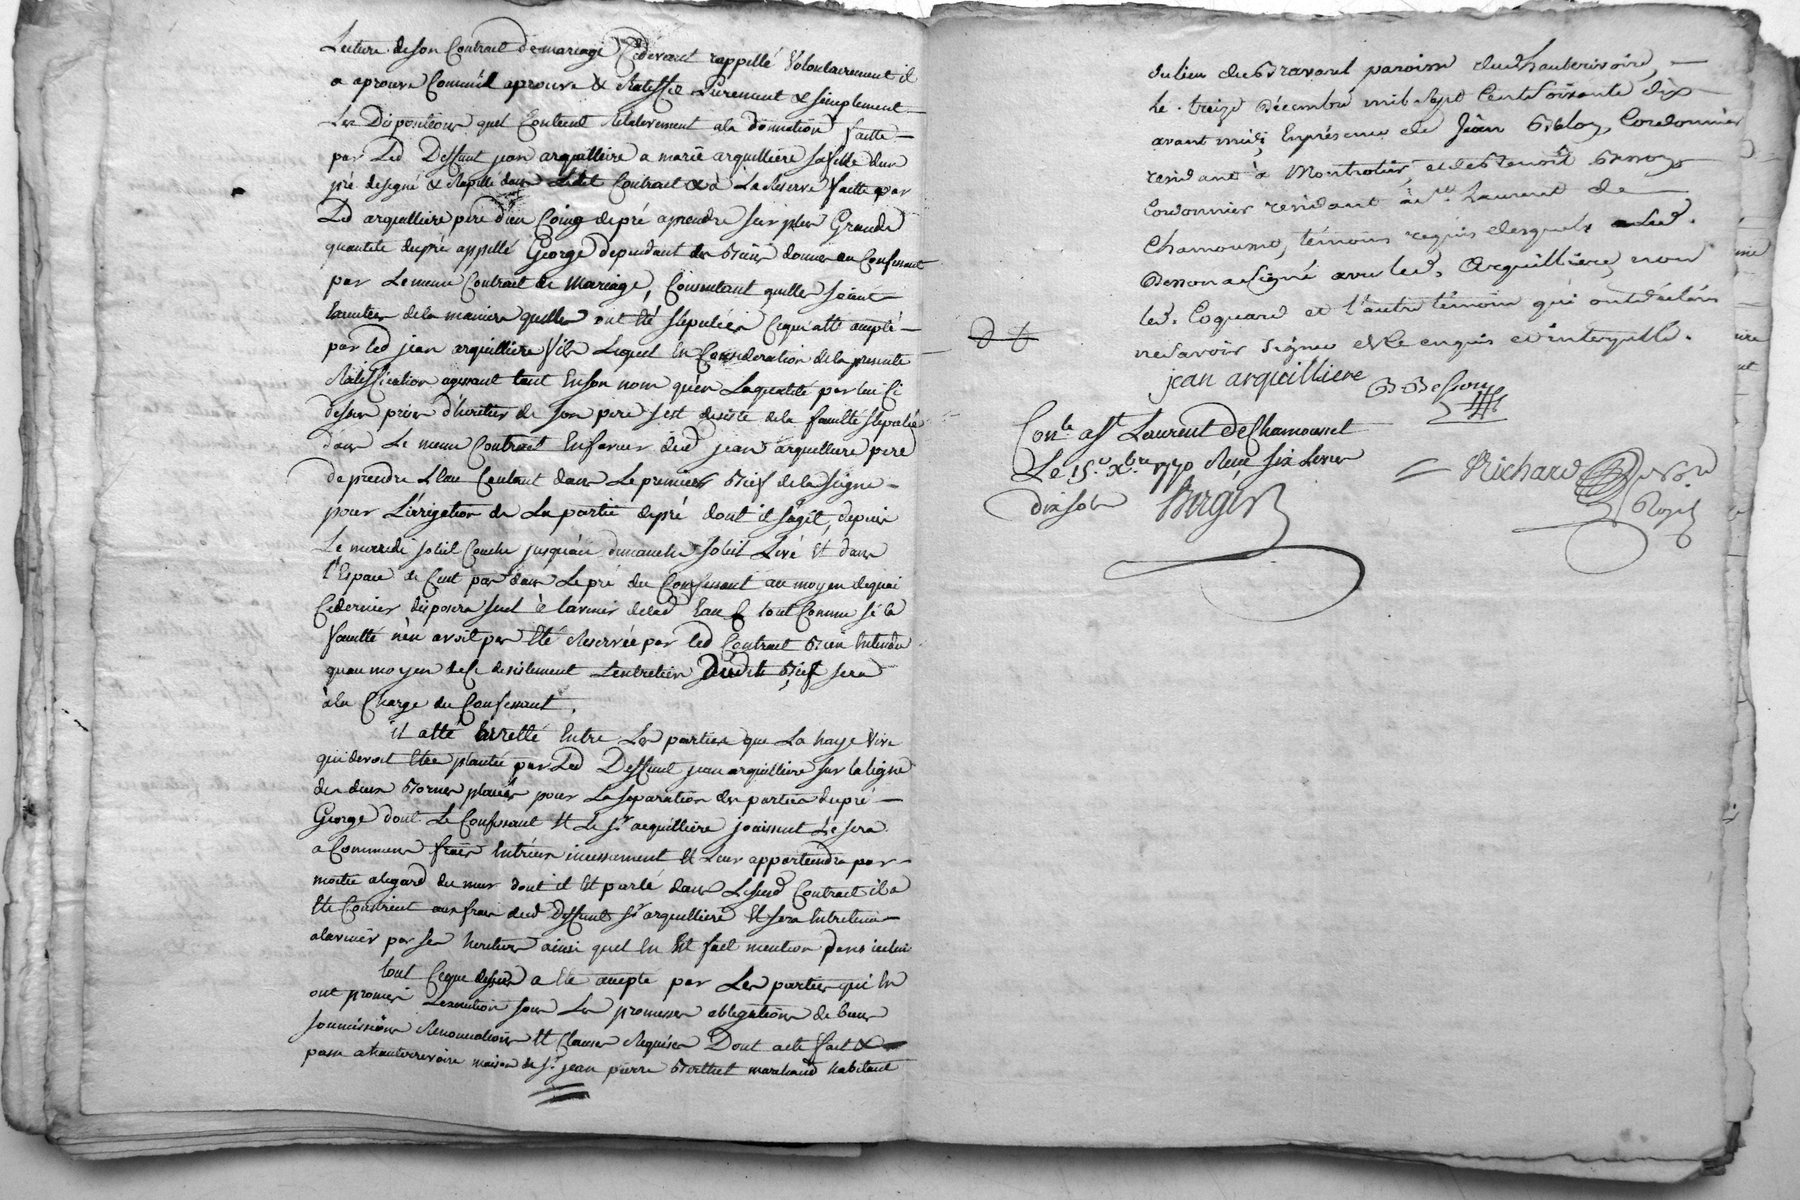 Lecture de son Contract de mariage Cydevant rappellé Volontairement il
a aprouvé Comme il aprouve & Ratiffie Purement & simplement
Les Dispositions quel Contient Relativement ala donnation faitte
par Led Deffunt jean arquilliere a marie arquilliere sa fille dun
pré designé & Rapellé dans Ledit Contract & à La Reserve faitte par
Led arquilliere pere d'un Coing de pré aprendre sur plus Grande
quantité du pré appellé George dependant des Biens donnés au Confessant
par Le meme Contract de Mariage, Consentant quelles soient
Executées de la maniere quelles ont été stipulées Ce qui atté accepté
par led jean arquilliere fils Lequel En Consideration de la presente
Ratiffication agissant tant En son nom qu'en La qualité par lui Ci
dessus prise d'heritier de son pere s'est desisté de la faculté stipulée
dans Le meme Contract En faveur dud jean arquilliere pere
de prendre L'eau Coulant dans Le premier Bief de la seigne
pour L'irrigation de La partie de pré dont il s'agit, depuis
Le mercredi soleil Couché jusqu'au dimanche soleil Levé Et dans
l'Espace de Cent pas dans Le pré du Confessant au moyen de quoi
Ce dernier disposera seul à l'avenir delad Eau tout Comme si la
faculté n'en avoit pas Eté Reservée par led Contract Bien Entendu
quau moyen de Ce desistement L'entretien Dudit Bief sera
à la Charge du Confessant.
il atté arretté Entre Les parties que La haye Vive
qui devoit Etre plantée par Led Deffunt jean arquilliere sur la ligne
des deux Bornes placées pour La separation des parties du pré
George dont Le Confessant Et Le Sr arquilliere jouissent Le sera
a Communs frais Entr'eux incessamment Et Leur appartiendra par
moitié alegard du mur dont il Et parlé dans Lesusd Contract il a
Eté Construit aux frais dud Deffunt Sr arquilliere Et sera Entretenu
alavenir par ses heritiers ainsi quel En Est fait mention dans icelui
tout Ceque dessus a Eté accepté par Les parties qui En
ont promis L'execution sous Les promesses obligations de biens
soumissions Renonciations Et Clauses Requises Dont acte fait &
passé a hauterivoire maison de Sr. jean pierre Berthet marchand habitant
du lieu du Bravard paroisse dud hauterivoire,
le treize Décembre mil sept Cent soixante dix
avant midi, En présence de Jean Giblon, Cordonnier
residant à Montrotier et de Benoît Besson
Cordonnier residant à St. Laurent de
Chamousset, témoins requis desquels Led.
Besson a Signé avec led. Arquilliere, non
led. Coquard et l'autre témoin qui ont déclaré
ne Savoir Signer de ce enquis et interpellé.
jean arquilliere
B Besson
Conlé a St Laurent de Chamousset
Le 15e Xbre 1770 Reçu six Livres
dix sols
Richard